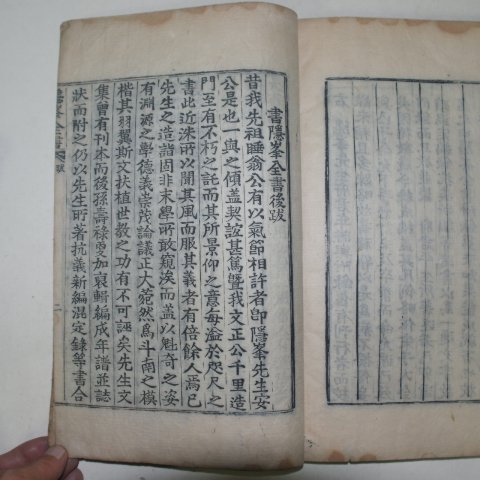 書隱峯全書後跋
昔我先祖睡翁公有以氣節相許者卽隱峯先生安
公是也一與之傾盖契誼甚篤曁我文正公千里造
門至有不朽之託而其所景仰之意每溢於咫尺之
書此近洙所以聞其風而服其義者有倍餘人焉已
先生之造詣固非末學所敢窺涘而盖以魁奇之姿
有淵源之學德義崇茂論議正大菀然爲斗南之模
楷其羽翼斯文扶植世敎之功有不可誣矣先生文
集曾有刊本而後孫壽祿更加裒輯編成年譜並誌
狀而附之仍以先生所著抗義新編混定錄等書合
隱峯全書 跋 二